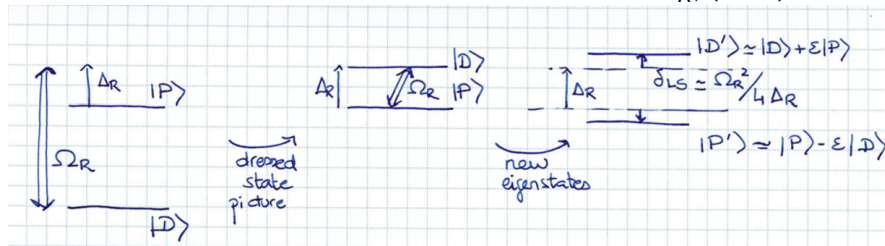 ΔR
|P⟩
ΩR
|D⟩
dressed
state
picture
ΔR
|D⟩
ΩR
|P⟩
new
eigenstates
|D'⟩ ≃ |D⟩ + ε|P⟩
ΔR
δLS ≃ ΩR²/4ΔR
|P'⟩ ≃ |P⟩ - ε|D⟩